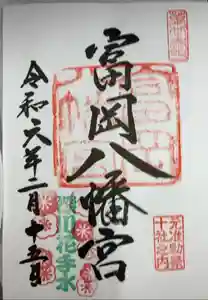 富岡八幡宮
元准勅祭
十社之内
令和六年二月十五日
花手水